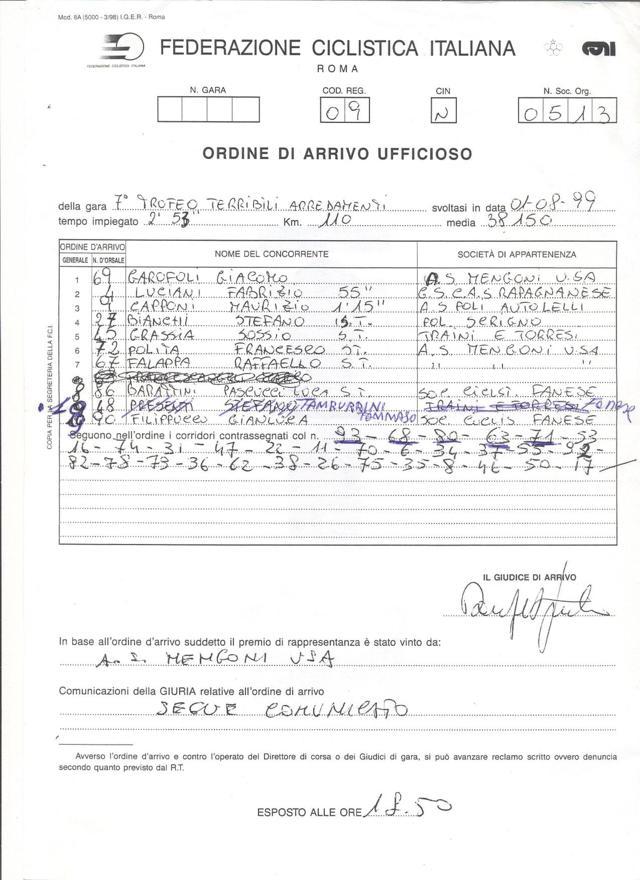 Mod. 6A (5000 - 3/98) I.G.E.R. - Roma
FEDERAZIONE CICLISTICA ITALIANA
FEDERAZIONE CICLISTICA ITALIANA
CONI
ROMA
N. GARA COD. REG. CIN N. Soc. Org.
09 N 0513
ORDINE DI ARRIVO UFFICIOSO
della gara 7° TROFEO TERRIBILI ARREDAMENTI svoltasi in data 01-08-99
tempo impiegato 2° 53" Km. 110 media 38150
ORDINE D'ARRIVO NOME DEL CONCORRENTE SOCIETÀ DI APPARTENENZA
GENERALE N. D'ORSALE
1 69 GAROFOLI GIACOMO A.S MENGONI USA
2 4 LUCIANI FABRIZIO 55" G.S.C.A.S RAPAGNANESE
3 9 CAPPONI MAURIZIO 1'15" A.S POLI AUTOLELLI
4 27 BIANCHI STEFANO S.T. POL. SERIGNO
5 45 GRASSIA SOSSIO S.T. TRAINI E TORRESI
6 72 POLITA FRANCESCO ST. A.S. MENGONI U.SA
7 67 FALAPPA RAFFAELLO S.T. " " "
8 86 BARATTINI PASCUCCI LUCA S.T SOC CICLSI. FANESE
9 48 PRESUTI STEFANO TAMBURRINI TOMMASO TRAINI E TORRESI Fanese
90 FILIPPUCCI GIANLUCA SOC CICLIS. FANESE
Seguono nell'ordine i corridori contrassegnati col n. 93-68-80-63-71-53
16-74-31-47-22-11-70-6-34-37-55-92
82-78-79-36-62-38-26-75-35-8-46-50-17
COPIA PER LA SEGRETERIA DELLA F.C.I.
IL GIUDICE DI ARRIVO
In base all'ordine d'arrivo suddetto il premio di rappresentanza è stato vinto da:
A. S. MENGONI USA
Comunicazioni della GIURIA relative all'ordine di arrivo
SEGUE COMUNICATO
Avverso l'ordine d'arrivo e contro l'operato del Direttore di corsa o dei Giudici di gara, si può avanzare reclamo scritto ovvero denuncia
secondo quanto previsto dal R.T.
ESPOSTO ALLE ORE 18.50